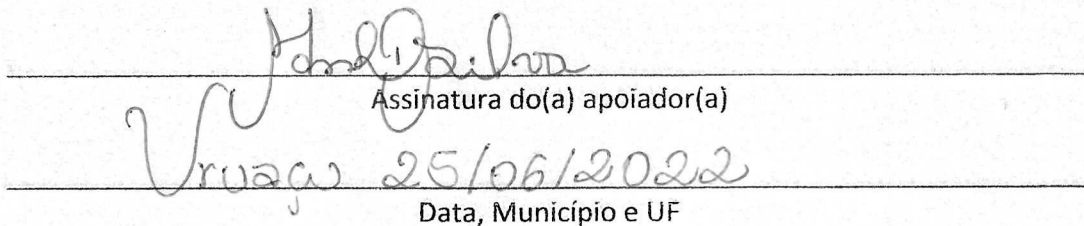 Assinatura do(a) apoiador(a)
Uruaçu 25/06/2022
Data, Município e UF